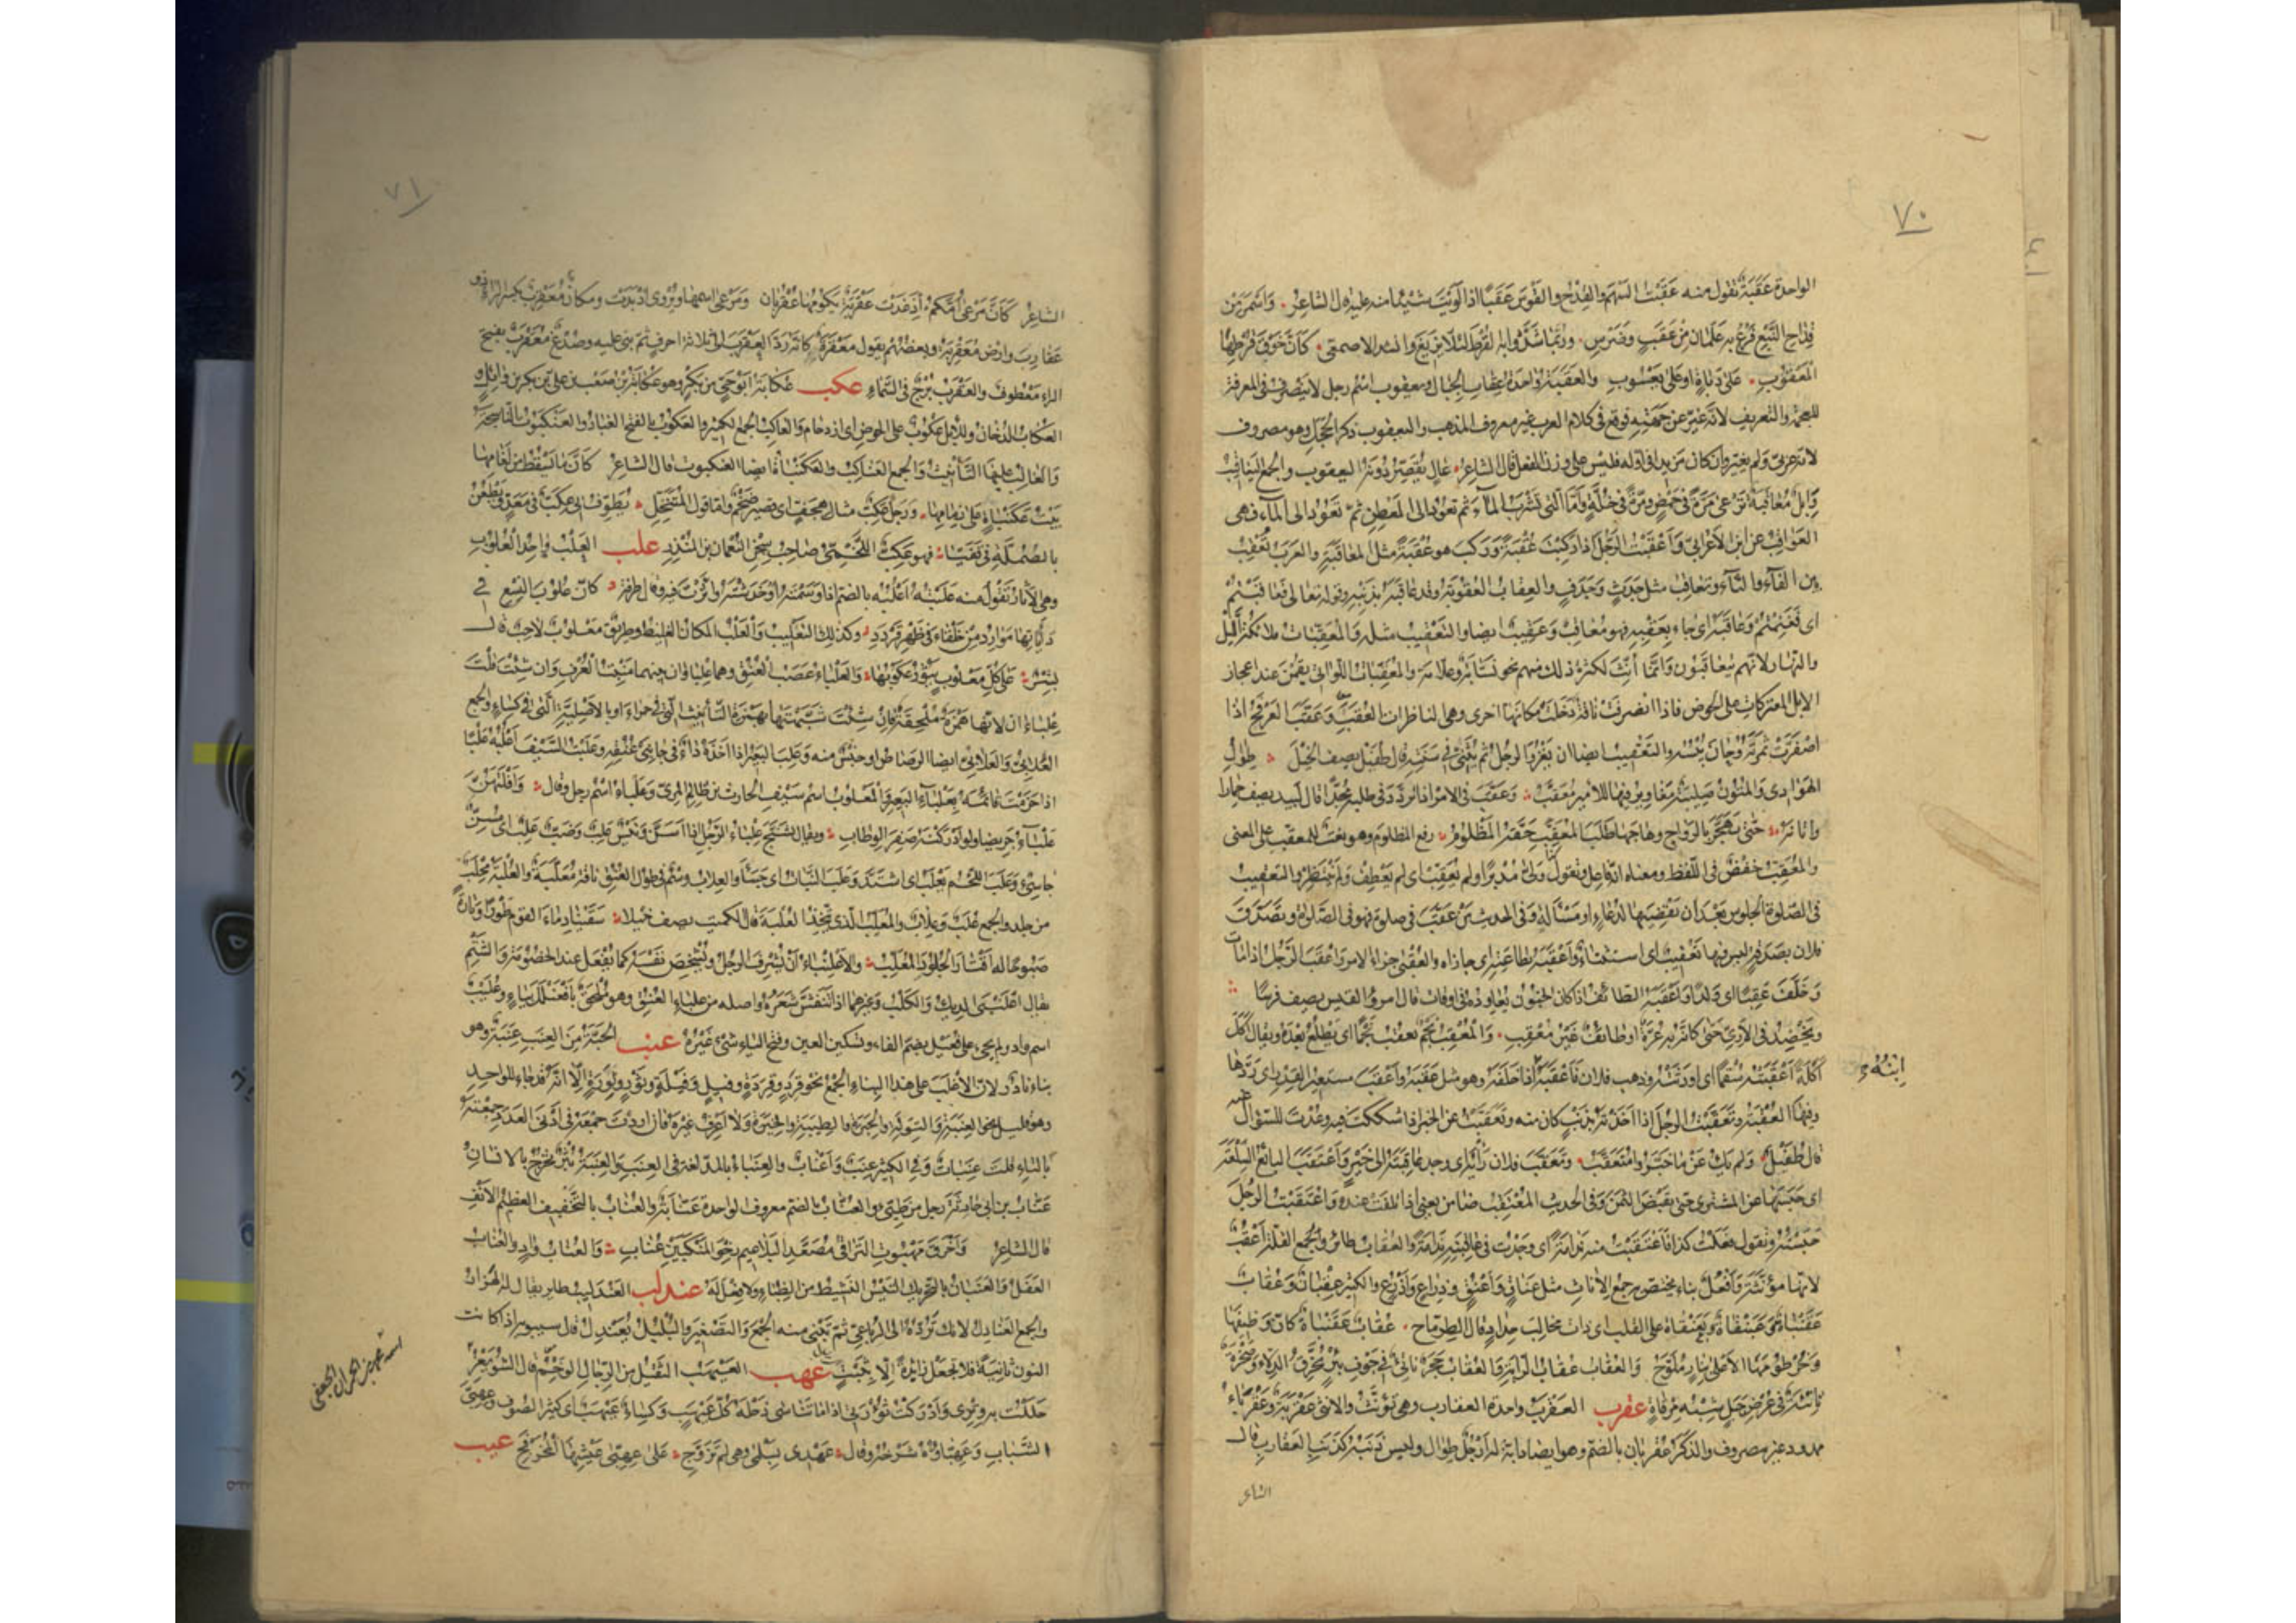 ٧٠
الواحدة عَقَبَةٌ تقول منه عَقَبْتُ السهم والقِدْحَ والقَوْسَ عَقْبًا اذا لَوَيْتَ شيئًا منه عليه قال الشاعر واسْمَرَ مِنْ
قِداح النَّبْعِ فَرْعٍ به عَلَمَانِ من عَقَبٍ وضَرْسِ وربّما شَدُّوا به القُرْطَ لئلّا يزيغ وانشد الاصمعي كأن خَوْقَ قُرْطِها
المَعْقُوبِ على دَبَاةٍ او على يَعْسُوبِ والعَقَبَةُ واحدة عِقابِ الجبال ويعقوب اسم رجل لا ينصرف في المعرفة
للعجمة والتعريف لانه غُيِّرَ عن جهته فوقع في كلام العرب غير معروف المذهب واليعقوب ذكر الحَجَل وهو مصروف
لانه عربيّ ولم يغيَّر وان كان مزيدا في اوّله فليس على وزن الفعل قال الشاعر عالٍ يُقَصِّرُ دُونَهُ اليعقوب والجمع اليعاقيب
وابل مُعاقِبَةٌ تَرْعى مَرَّةً في حَمْضٍ ومَرَّةً في خُلَّةٍ وأمّا التي تشرب الماء ثم تعود الى المَعْطِن ثم تعود الى الماء فهي
العواقب عن ابن الاعرابيّ وأعْقَبْتُ الرجلَ اذا ركبتَ عُقْبَةً وركب هو عُقْبَةً مثل المعاقبة والعرب تُعْقِبُ
بين الفاء والثاء وتعاقب مثل جَدَثٍ وجَدَفٍ والعِقاب العقوبة وقد عاقبته بذنبه وقوله تعالى فعاقبتم
اى فغنمتم وعاقبه اى جاء بعَقِبِه فهو معاقب وعقيب ايضا والتعقيب مثله والمعقّبات ملائكة الليل
والنهار لانهم يتعاقبون وانما أُنِّثَ لكثرة ذلك منهم نحو نسّابة وعلّامة والمعقّبات اللواتي يقمن عند اعجاز
الابل المعتركات على الحوض فاذا انصرفت ناقة دخلت مكانها اخرى وهي الناظرات العُقَب وعَقَّبَ العرفج اذا
اصفرّت ثمرته وحان يُبْسُه والتعقيب ايضا ان يغزو الرجل ثم يُثَنّي في سَنَتِه قال طفيل يصف الخيل طِوالُ
الهوادي والمتون صليبة مغاوير فيها للأمير مُعَقَّبُ وعَقَّبَ في الامر اذا تردّد في طلبه مُجِدًّا قال لبيد يصف حمارا
وأتانه حتى تَهَجَّرَ بالرواح وهاجها طلبَ المعقِّبِ حقَّه المظلومُ رفع المظلوم وهو نعت للمعقّب على المعنى
والمعقّب خفض في اللفظ ومعناه انه فاعل وتقول ولّى مدبرا ولم يعقّب اى لم يعطف ولم ينتظر والتعقيب
في الصلوة الجلوس بعد أن يقضيها لدعاء او مسألة وفي الحديث من عقّب في صلوة فهو في الصلوة وتصدّق
فلان بصدقة ليس فيها تعقيب اى استثناء وأعقبه بطاعته اى جازاه والعُقْبى جزاء الامر واعقب الرجل اذا مات
وخلّف عقبا اى ولدا واعقبه الطائف اذا كان الجنون يعاوده في اوقات قال امرؤ القيس يصف فرسا
ويخضد في الآريّ حتى كأنّه به عُرَّةٌ او طائف غير مُعْقِبِ والمُعْقِب نجم يعقب نجما اى يطلع بعده ويقال اكل
اكلة اعقبته سقما اى اورثته وذهب فلان فأعقبه ابنه اذا خلفه وهو مثل عقبه وأعقب مستعير القِدْر اى ردّها
وفيها العُقبة وتعقّبت الرجل اذا اخذته بذنب كان منه وتعقّبت عن الخبر اذا شككت فيه وعُدْتَ للسؤال عنه
قال طفيل ولم يك عمّا خبّروا متعقَّبُ وتعقّب فلان رأيه اى وجد عاقبته الى خير واعتقب البائع السلعة
اى حبسها عن المشتري حتى يقبض الثمن وفي الحديث المعتقب ضامن يعني اذا تلفت عنده واعتقبت الرجل
حبسته وتقول فعلت كذا فاعتقبت منه ندامة اى وجدت في عاقبته ندامة والعُقاب طائر والجمع القلّة أعْقُبٌ
لانها مؤنثة وأفْعُلٌ بناء يختصّ به جمع الاناث مثل عَناقٍ وأعْنُقٍ وذراع وأذرع والكثير عِقبان وعُقاب
عَقَنْباةٌ وعَبَنْقاةٌ وبَعَنْقاةٌ على القلب اى ذات مخالب حداد قال الطرماح عُقابٌ عَقَنْباةٌ كأنّ وظيفها
وخرطومها الأعلى بنارٍ ملوّح والعُقاب عُقاب الراية والعُقاب حجر ناتئ في جوف بئر يخرق الدلاء وصخرة
ناتئة في عُرض جبل شبه مرقاة عقرب العقرب واحدة العقارب وهي تؤنّث والانثى عقربة وعقرباء
ممدود غير مصروف والذكر عقربان بالضم وهو ايضا دابة له ارجل طوال وليس ذنبه كذنب العقارب قال
الشاعر
ابنُه
٧١
الشاعر كأنّ مرعى أمّكم اذ غدت عقربةٌ يكومها عقربان ومرعى اسمها ويروى اذ بدت ومكان معقرب بكسر الراء ذو
عقارب وارض معقربة وبعضهم يقول معقرة كانه ردّ العقرب الى ثلاثة احرف ثم بنى عليه وصُدْغ معقرب بفتح
الراء معطوف والعقرب برج في السماء عكب عُكابة ابو حيّ من بكر وهو عكابة بن صعب بن علي بن بكر بن وائل و
العكاب الدخان وللابل عكوب على الحوض اى ازدحام والعاكب الجمع الكثير والعكوب بالفتح الغبار والعنكبوت الناسجة
والغالب عليها التأنيث والجمع العناكب والعكنباة ايضا العنكبوت قال الشاعر كأنّ ما يسقط من لغامها
بيت عكنباة على زمامها ورجل عكبّ مثال هجفّ اى قصير ضخم وامّا قول المتنخّل يطوّف بي عكبّ في معدّ ويطعن
بالصملّة في قفيّا فهو عكبّ اللخمي صاحب سجن النعمان بن المنذر علب العلب واحد العلوب
وهي الآثار تقول منه علبته أعلبه بالضم اذا وسمته او خدشته او أثّرت فيه قال طرفة كأنّ علوب النسع في
دأياتها موارد من خلقاء في ظهر قردد وكذلك التعليب والعلب المكان الغليظ وطريق معلوب لاحب قال
بشر على كل معلوب يثور عكوبها والعلباء عصب العنق وهما علباوان بينهما منبت العُرف وان شئت قلت
علباءان لانها همزة ملحقة فان شئت شبّهتها بهمزة التأنيث التي في حمراء او بالاصلية التي في كساء والجمع
العلابيّ والعلابيّ ايضا الرصاص او جنس منه وعلب البعير اذا اخذه داء في جانبي عنقه وعلبت السيف أعلبه علبا
اذا حزمت قائمه بعلباء البعير والمعلوب اسم سيف الحارث بن ظالم المرّي وعلباء اسم رجل وقال وأفلتهنّ
علباء جريضا ولو أدركنه صفر الوطاب ويقال تشنّج علباء الرجل اذا أسنّ وتيس علب وضبّ علب اى مسنّ
جاسئ وعلب اللحم يعلب اى اشتدّ وعلب النبات اى جسأ والعلاب وسم في طول العنق ناقة معلّبة والعلبة محلب
من جلد والجمع علب وعلاب والمعلّب الذي يتّخذ العلبة قال الكميت يصف خيلا سقينا دماء القوم طورا وتارة
صبوحا له أقتار الجلود المعلّب والاعلنباء أن يشرف الرجل ويشخص نفسه كما يفعل عند الخصومة والشتم
يقال اعلنبى الديك والكلب وغيرهما اذا تنفّش شعره واصله من علباء العنق وهو ملحق بافعنلل بياء وعُلْيَب
اسم واد ولم يجئ على فعيل بضم الفاء وتسكين العين وفتح الياء شيء غيره عنب الحبّة من العنب عنبة وهو
بناء نادر لان الاغلب على هذا البناء الجمع نحو قرد وقردة وفيل وفيلة وثور وثورة إلّا انه قد جاء للواحد
وهو قليل نحو العنبة والتولة والحبرة والطيبة والخيرة ولا أعرف غيره فان أردت جمعه في أدنى العدد جمعته
بالتاء قلت عنبات وفي الكثير عنب وأعناب والعنباء بالمد لغة في العنب والعنبة بثر يخرج بالانسان
عنّاب بن أبي حارثة رجل من طيّئ والعنّاب بالضم معروف الواحدة عنّابة والعناب بالتخفيف العظيم الأنف
قال الشاعر وأخرق مهبوت التراقي مصعّد البلاعيم رخو المنكبين عناب والعناب واد والعناب
العفل والعنبان بالتحريك التيس النشيط من الظباء ولا فعل له عندلب العندليب طائر يقال له الهزار
والجمع العنادل لانك تردّه الى الرباعي ثم تبني منه الجمع والتصغير والبلبل يعندل قال سيبويه اذا كانت
النون ثانية فلا تجعل زائدة إلّا بثبت عهب العيهب الثقيل من الرجال الوخم قال الشويعر
حللت به وتري وأدركت ثؤرتي اذا ما تناسى ذحله كلّ عيهب وكساء عيهب اى كثير الصوف وعهبّى
الشباب وعهبّاؤه شرخه وقال عهدي بسلمى وهي لم تزوّج على عهبّى عيشها المخرفج عيب
اسمه محمد بن حمران الجعفي